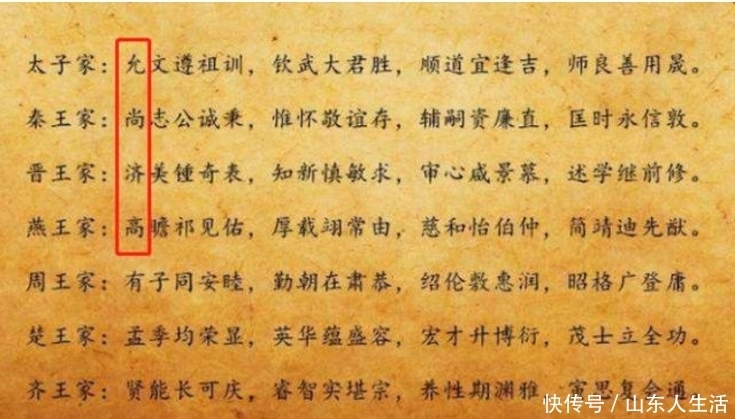 太子家：允文遵祖训，钦武大君胜，顺道宜逢吉，师良善用晟。
秦王家：尚志公诚秉，惟怀敬谊存，辅嗣资廉直，匡时永信敦。
晋王家：济美锺奇表，知新慎敏求，审心咸景慕，述学继前修。
燕王家：高瞻祁见佑，厚载翊常由，慈和怡伯仲，简靖迪先猷。
周王家：有子同安睦，勤朝在肃恭，绍伦敷惠润，昭格广登庸。
楚王家：孟季均荣显，英华蕴盛容，宏才升博衍，茂士立全功。
齐王家：贤能长可庆，睿智实堪宗，养性期渊雅，寅思复会通。
快传号／山东人生活